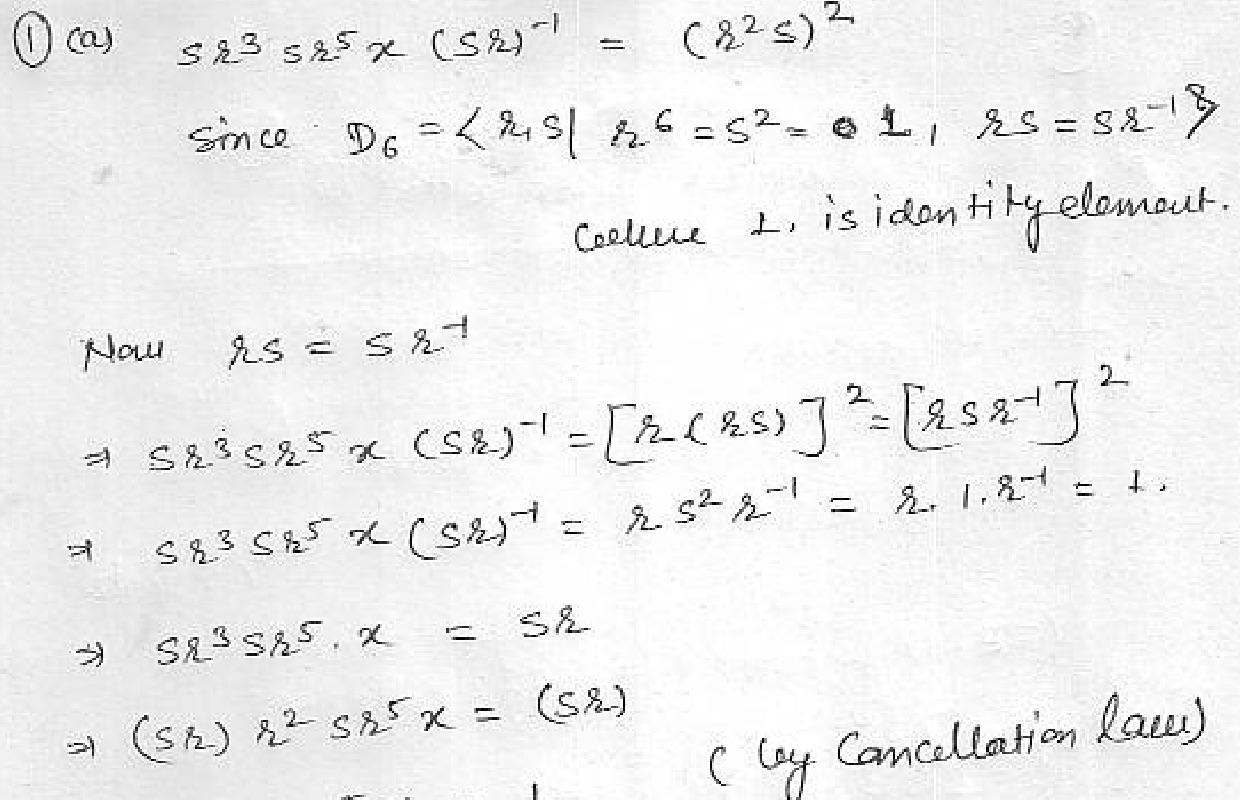 ① (a) sr³ sr⁵ x (sr)⁻¹ = (r²s)²
since D₆ = < r, s | r⁶ = s² = 1, rs = sr⁻¹ >
where 1, is identity element.
Now rs = sr⁻¹
⇒ sr³sr⁵ x (sr)⁻¹ = [r(rs)]² = [rsr⁻¹]²
⇒ sr³sr⁵ x (sr)⁻¹ = r s² r⁻¹ = r. 1. r⁻¹ = 1.
⇒ sr³sr⁵. x = sr
⇒ (sr) r² sr⁵ x = (sr)
( by Cancellation law)